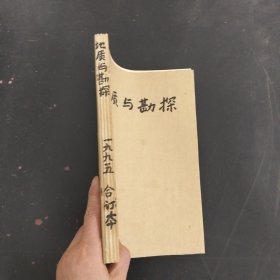 地质与勘探
一九九五 合订本
质与勘探